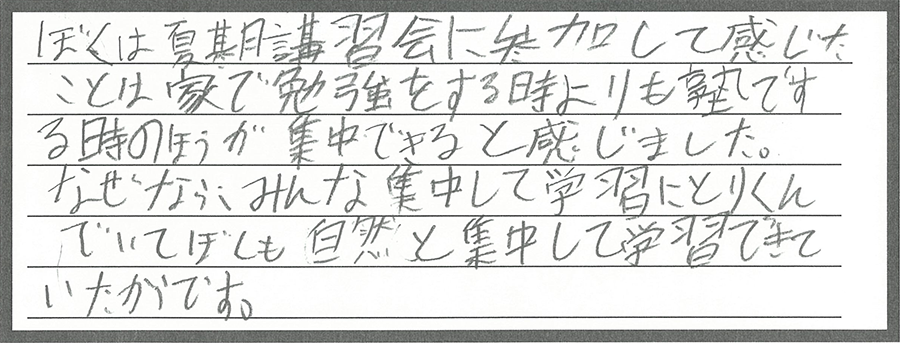 ぼくは夏期講習会に参加して感じた
ことは家で勉強をする時よりも塾です
る時のほうが集中できると感じました。
なぜなら、みんな集中して学習にとりくん
でいてぼくも自然と集中して学習できて
いたからです。